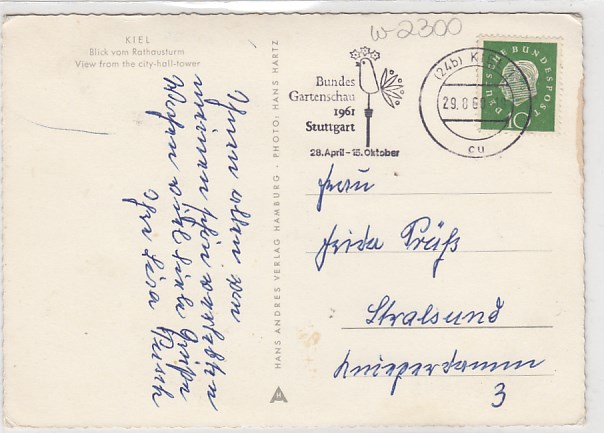 w-2300
KIEL
Blick vom Rathausturm
View from the city-hall-tower
Ihnen allen
und
meinen schönen
Kiel viele liebe Grüße
Ihre Lisa
HANS ANDRES VERLAG HAMBURG · PHOTO: HANS HARTZ
Bundes
Gartenschau
1961
Stuttgart
28. April - 15. Oktober
(24b) K
29.8.60
cu
DEUTSCHE BUNDESPOST
10
Frau
Frida Prüß
Stralsund
Knieperdamm
3